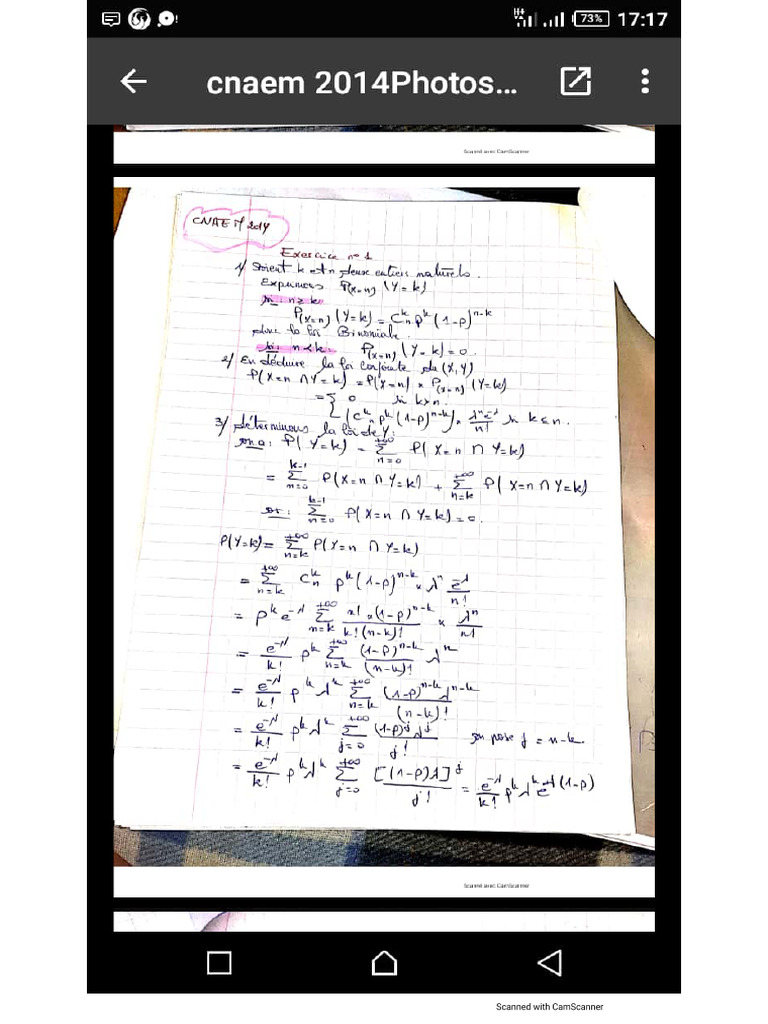 H+ 73% 17:17
cnaem 2014Photos...
Scanned with CamScanner
CNAEM 2014
Exercice n° 1
1/ Soient k et n deux entiers naturels.
Exprimons P(X=n) (Y=k)
si: n≥k
P(X=n) (Y=k) = C_n^k p^k (1-p)^{n-k}
donc la loi Binomiale.
si: n<k: P(X=n) (Y=k) = 0.
2/ En déduire la loi conjointe de (X,Y)
P(X=n ∩ Y=k) = P(X=n) × P(X=n) (Y=k)
= { 0 si k>n.
(C_n^k p^k (1-p)^{n-k}) × λ^n e^{-λ} / n! si k≤n.
3/ Déterminons la loi de Y:
on a: P(Y=k) = Σ_{n=0}^{+∞} P(X=n ∩ Y=k)
= Σ_{n=0}^{k-1} P(X=n ∩ Y=k) + Σ_{n=k}^{+∞} P(X=n ∩ Y=k)
or: Σ_{n=0}^{k-1} P(X=n ∩ Y=k) = 0.
P(Y=k) = Σ_{n=k}^{+∞} P(X=n ∩ Y=k)
= Σ_{n=k}^{+∞} C_n^k p^k (1-p)^{n-k} × λ^n e^{-λ} / n!
= p^k e^{-λ} Σ_{n=k}^{+∞} n! × (1-p)^{n-k} / k!(n-k)! × λ^n / n!
= e^{-λ} / k! p^k Σ_{n=k}^{+∞} (1-p)^{n-k} / (n-k)! λ^n
= e^{-λ} / k! p^k λ^k Σ_{n=k}^{+∞} (1-p)^{n-k} λ^{n-k} / (n-k)!
= e^{-λ} / k! p^k λ^k Σ_{j=0}^{+∞} (1-p)^j λ^j / j! on pose j = n-k.
= e^{-λ} / k! p^k λ^k Σ_{j=0}^{+∞} [(1-p)λ]^j / j! = e^{-λ} / k! p^k λ^k e^{λ(1-p)}
Scanned with CamScanner
Scanned with CamScanner